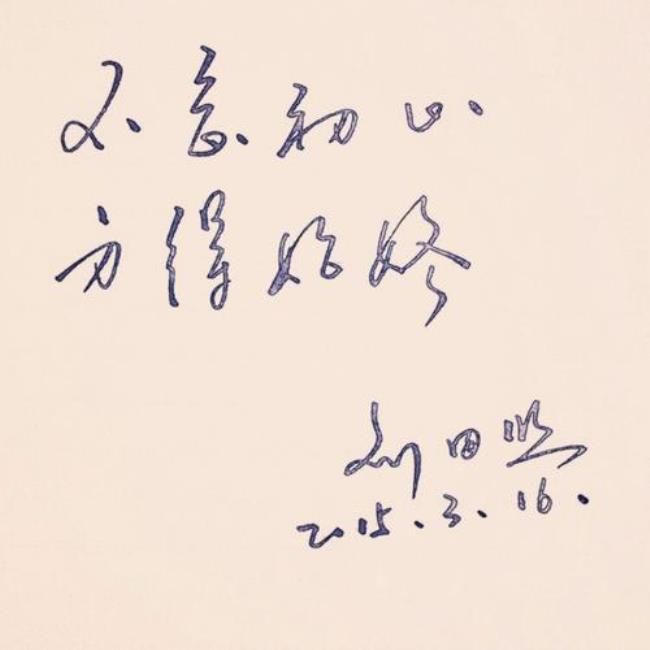 不忘初心
方得始终
刘田
2015.3.16.